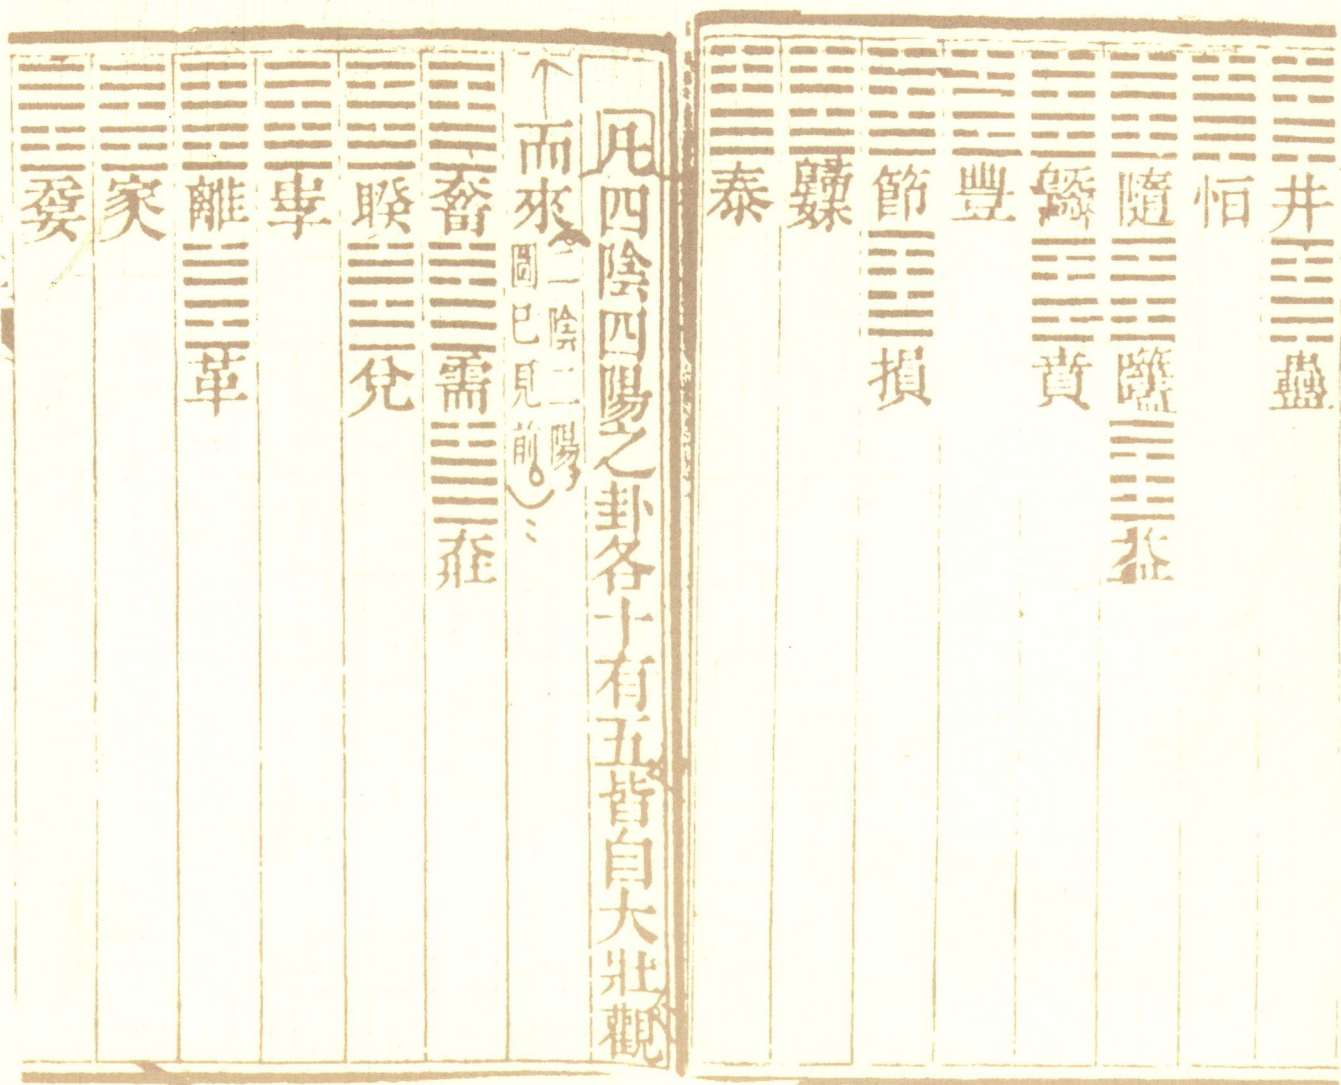 井 蠱
恒
隨 噬嗑 益
既濟 賁
豐
節 損
歸妹
泰
凡四陰四陽之卦各十有五皆自大壯觀
而來二陰二陽
圖已見前
大畜 需 大壯
睽 兌
中孚
離 革
家人
无妄